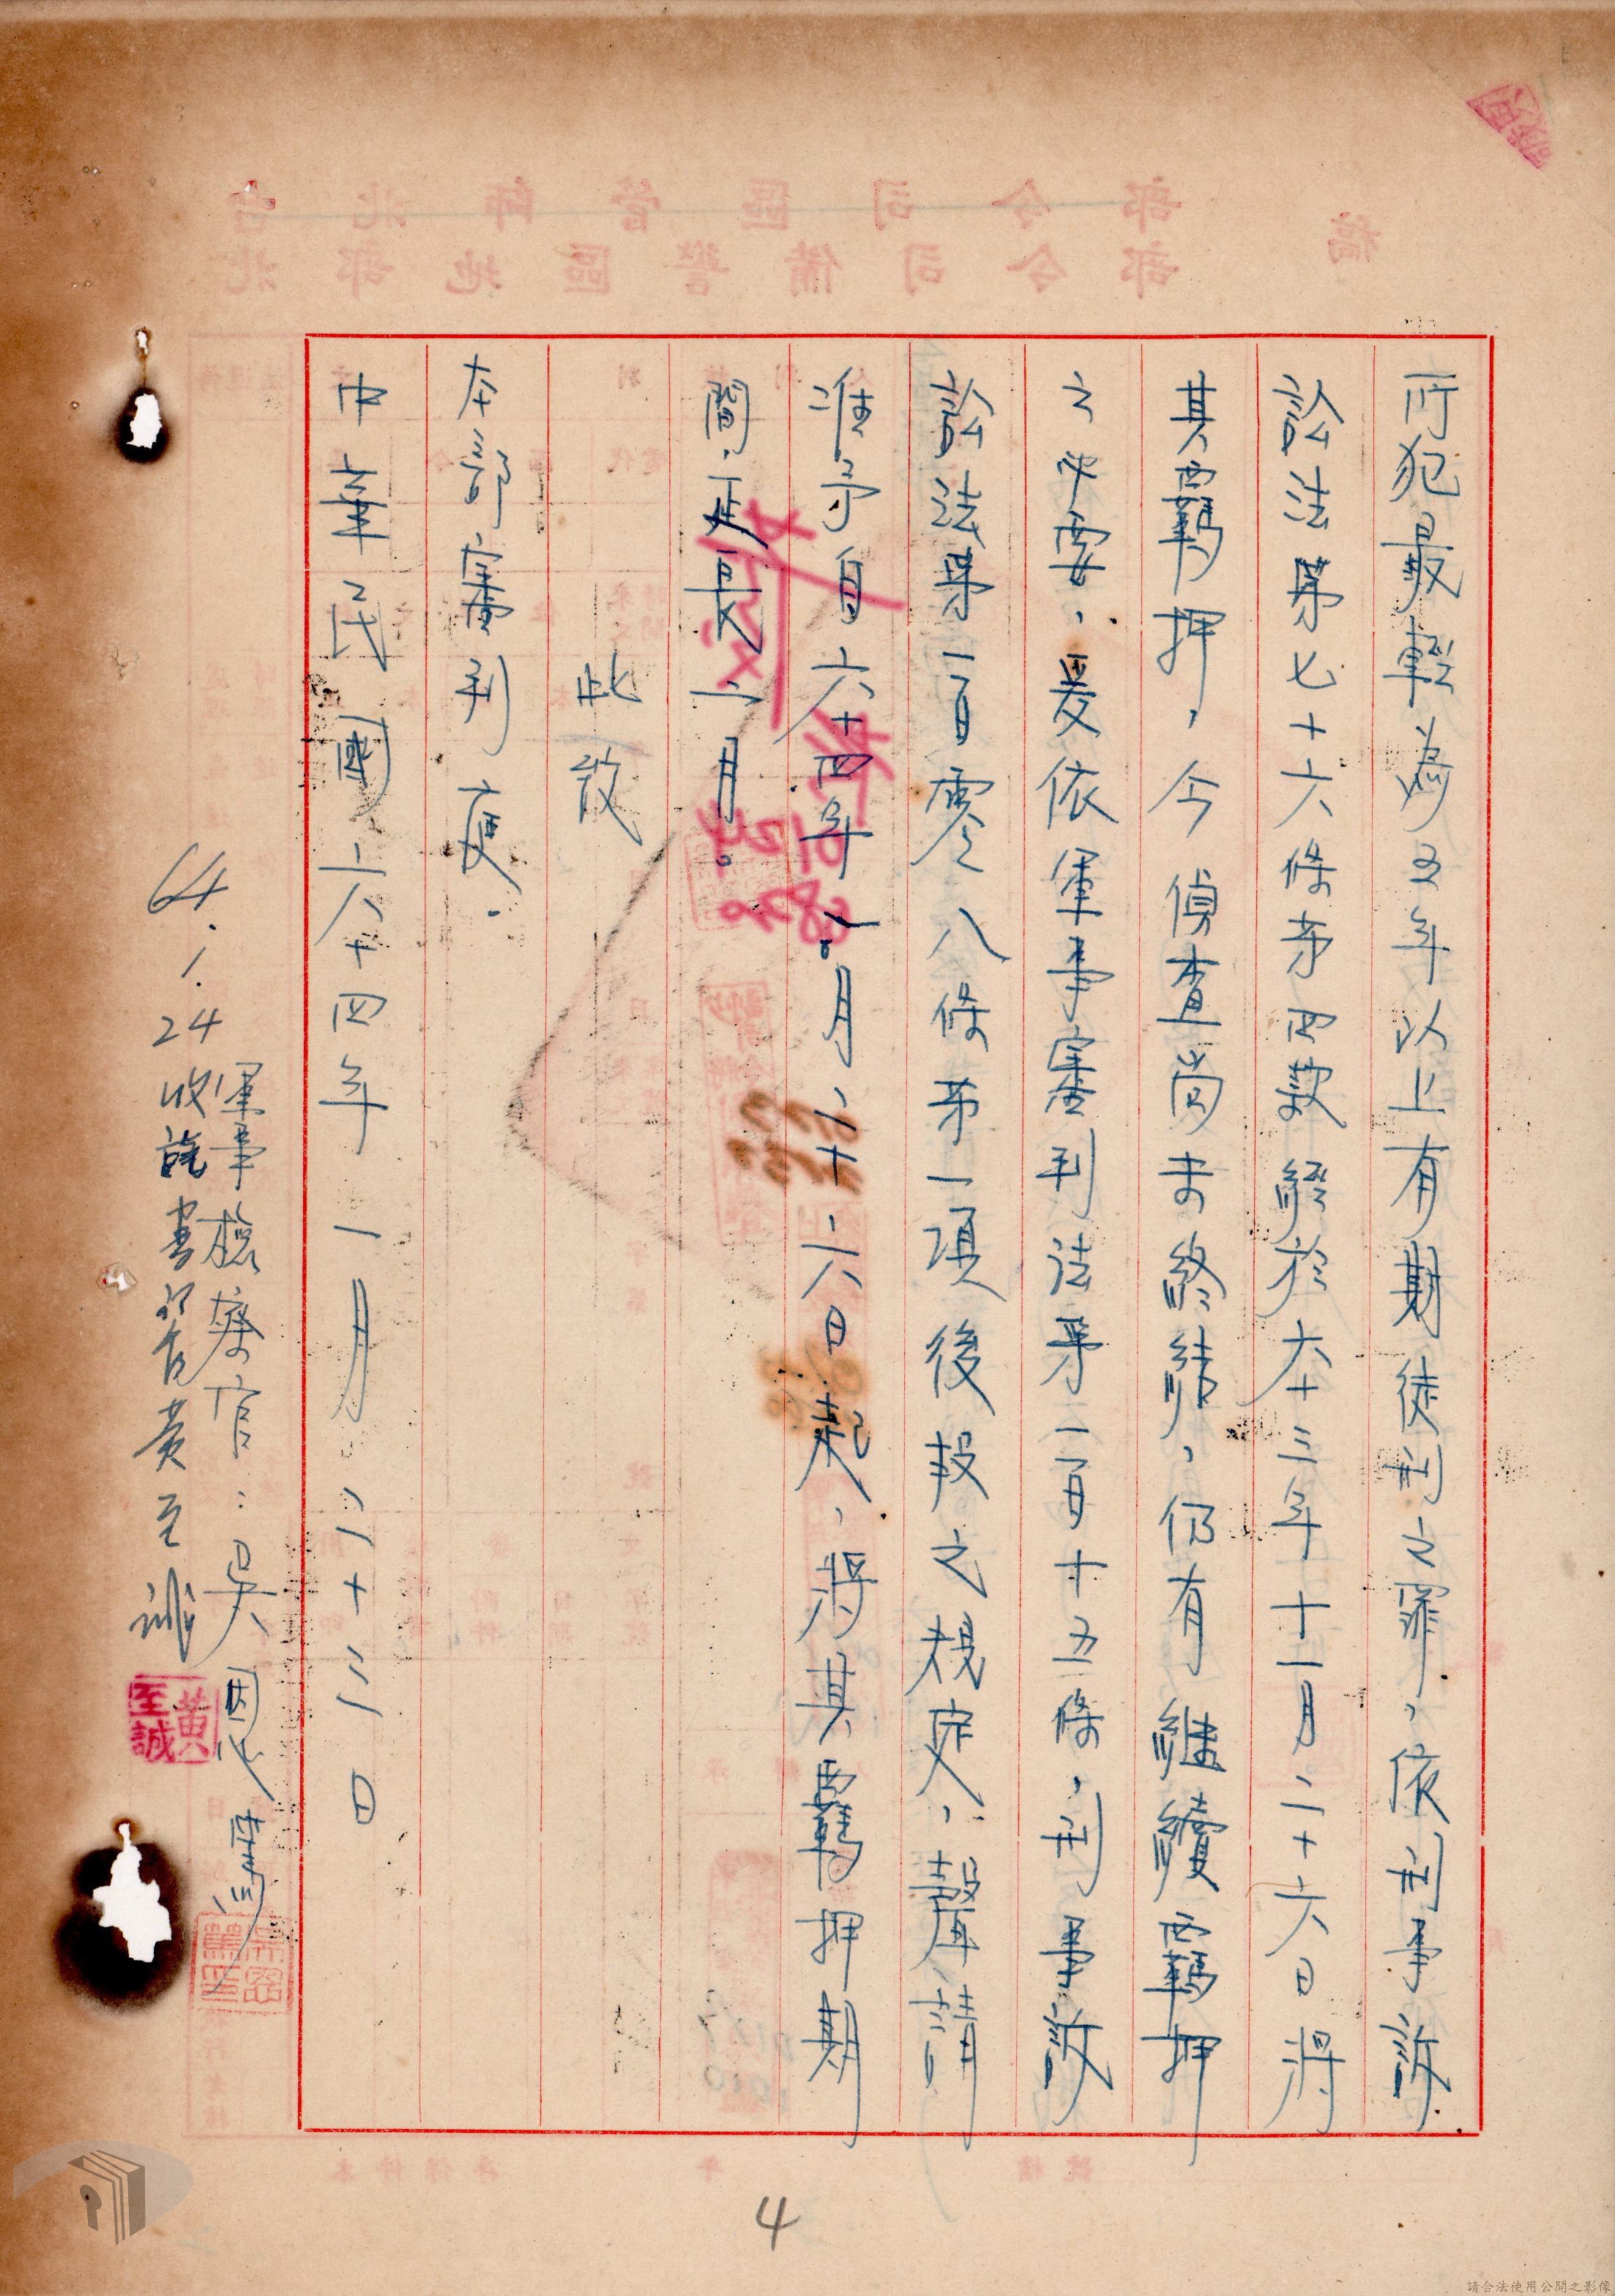 所犯最輕為五年以上有期徒刑之罪，依刑事訴
訟法第七十六條第四款經於六十三年十一月二十六日將
其羈押，今偵查尚未終結，仍有繼續羈押
之必要，爰依軍事審判法第一百十五條，刑事訴
訟法第一百零八條第一項後段之規定，聲請
准予自六十四年一月二十六日起，將其羈押期
間延長二月。
此致
本部審判庭。
中華民國六十四年一月二十二日
軍事檢察官：吳
64.1.24收訖書記官黃至誠
黃至誠
4
請合法使用公開之影像